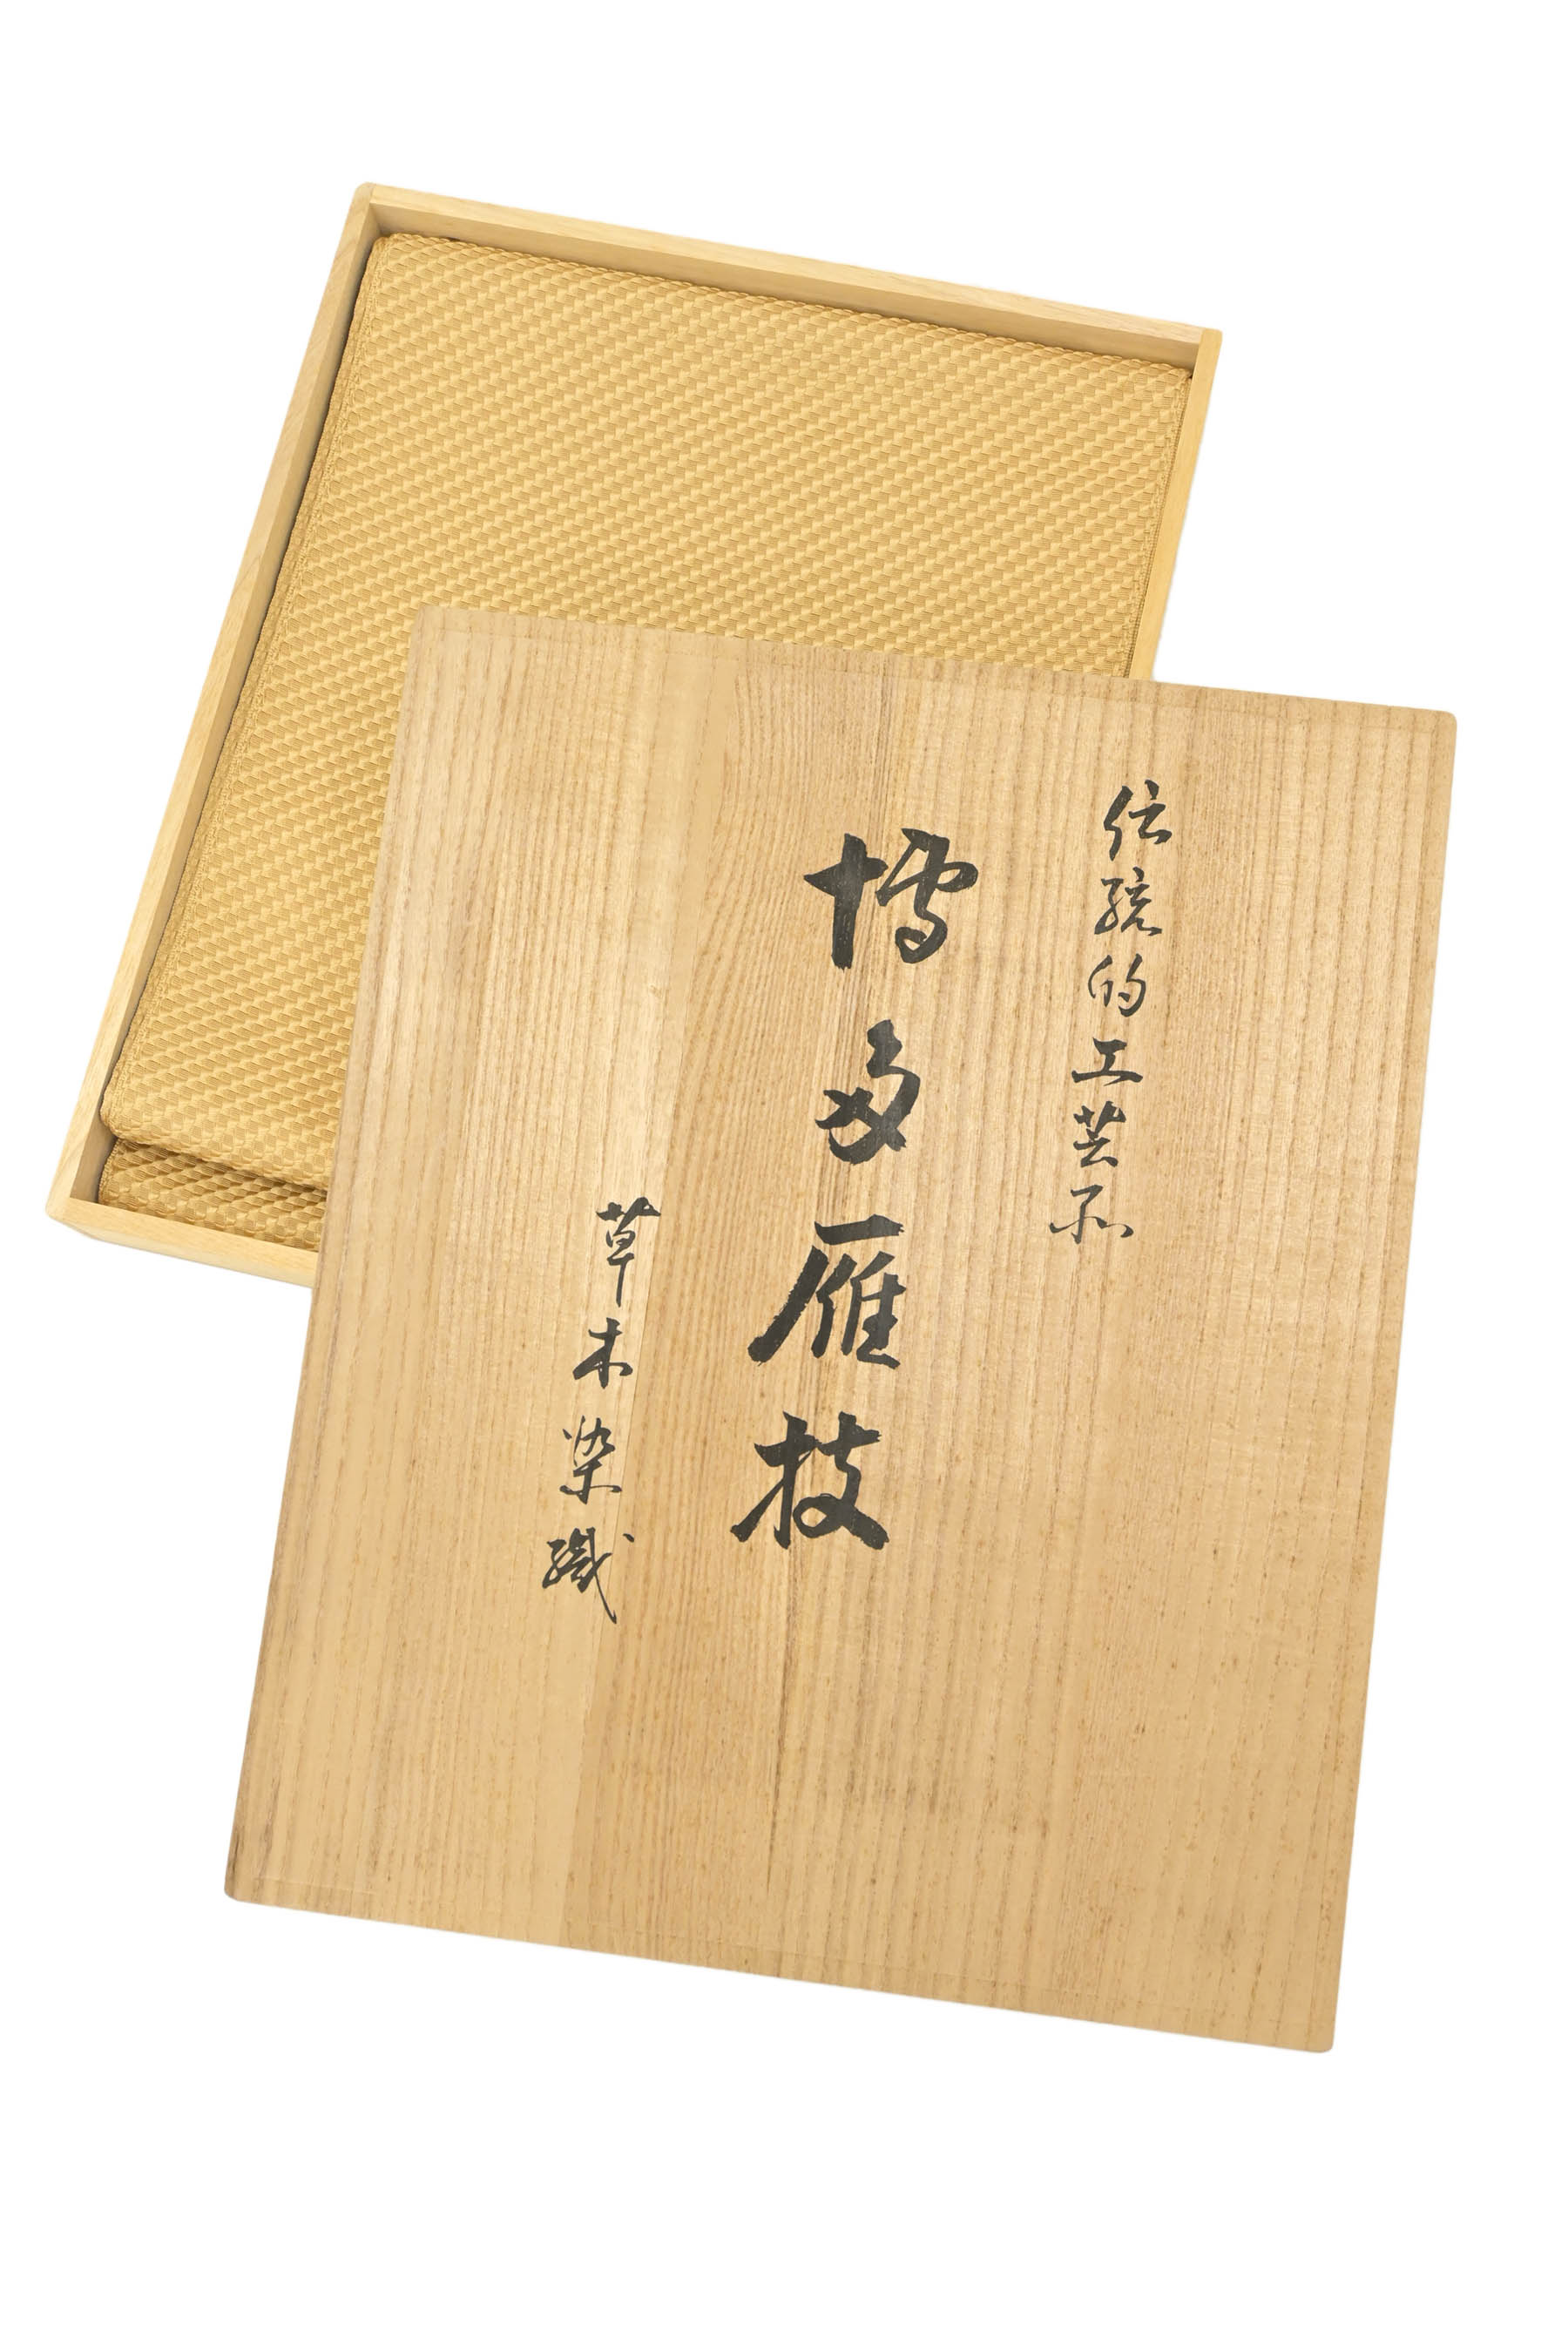 伝統的工芸品
博多雁技
草木染織